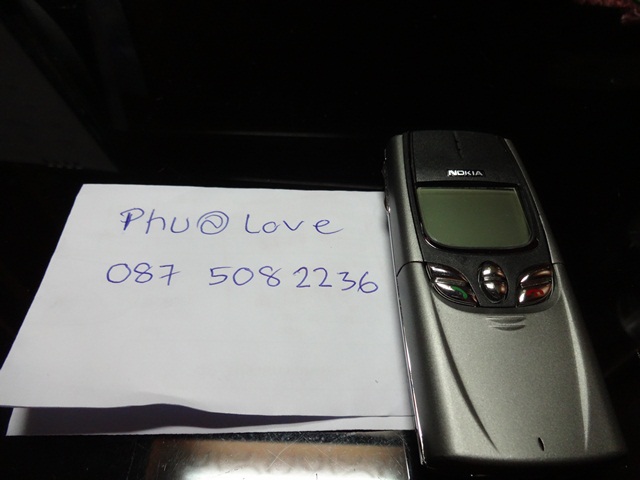 Phu@Love
087 5082236
NOKIA